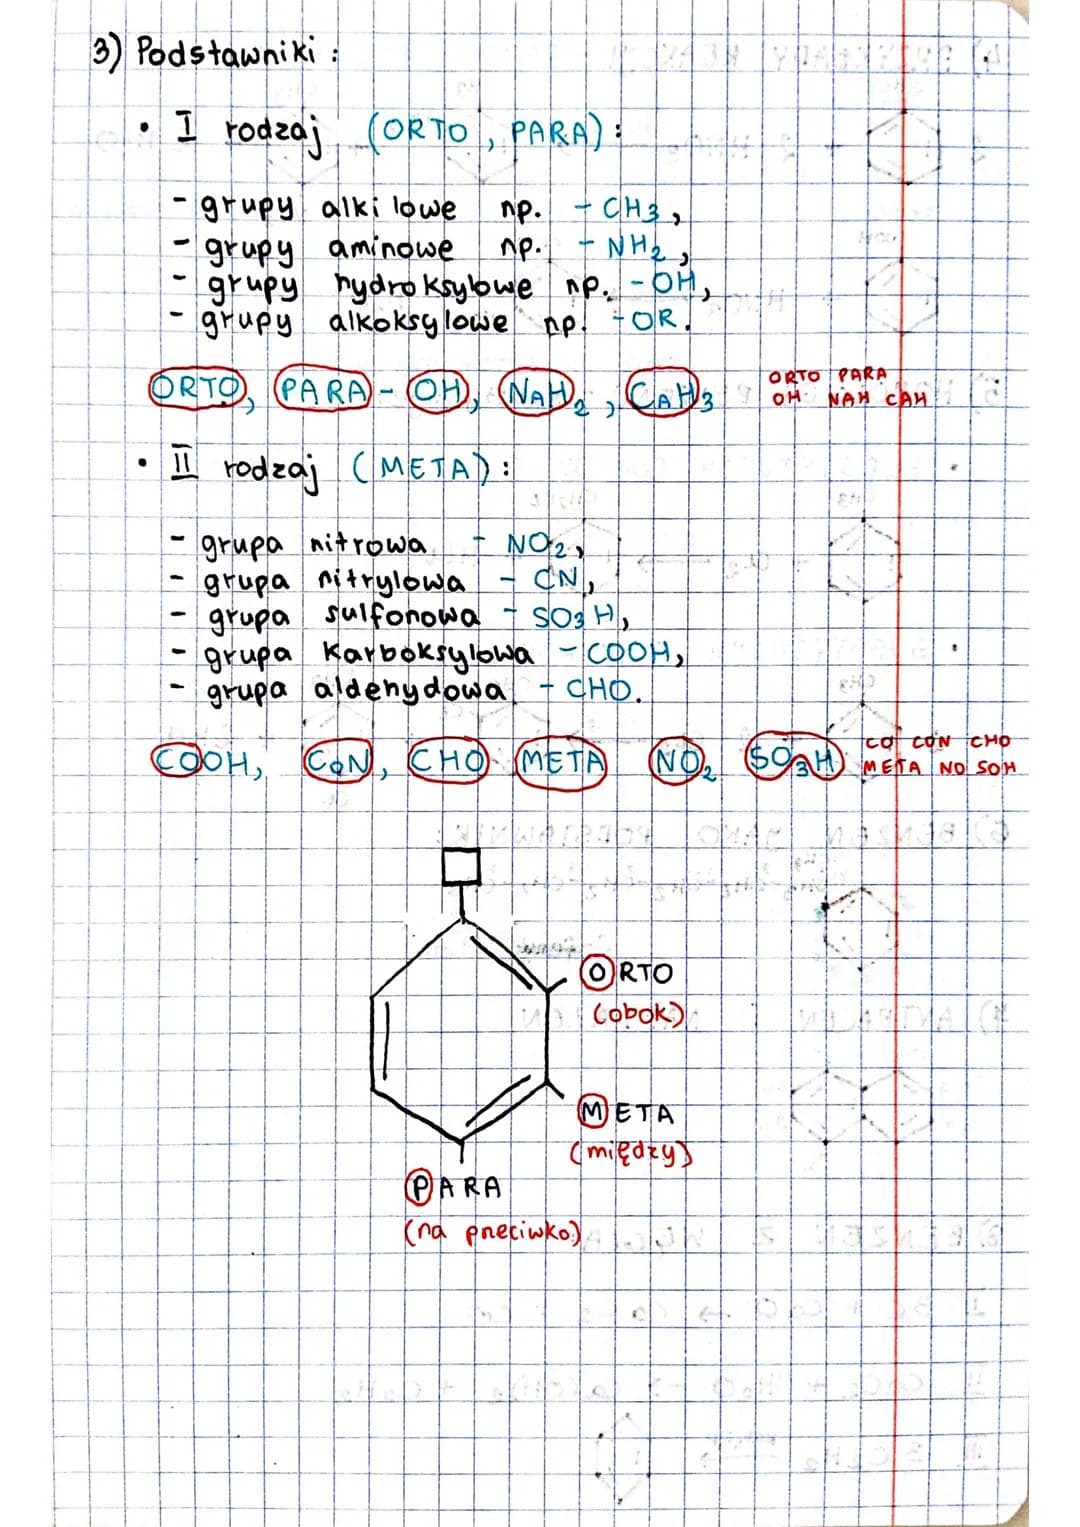 3) Podstawniki :
• I rodzaj (ORTO, PARA) :
- grupy alkilowe np. - CH3,
- grupy aminowe np. - NH2,
- grupy hydroksylowe np. - OH,
- grupy alkoksylowe np. - OR.
ORTO, PARA - OH, NAH2, CAH3
ORTO PARA
OH NAH CAH
• II rodzaj (META) :
- grupa nitrowa - NO2,
- grupa nitrylowa - CN,
- grupa sulfonowa - SO3H,
- grupa karboksylowa - COOH,
- grupa aldehydowa - CHO.
COOH, CON, CHO META NO2 SO3H
CO CON CHO
META NO SOH
ORTO
(obok)
META
(między)
PARA
(na przeciwko)